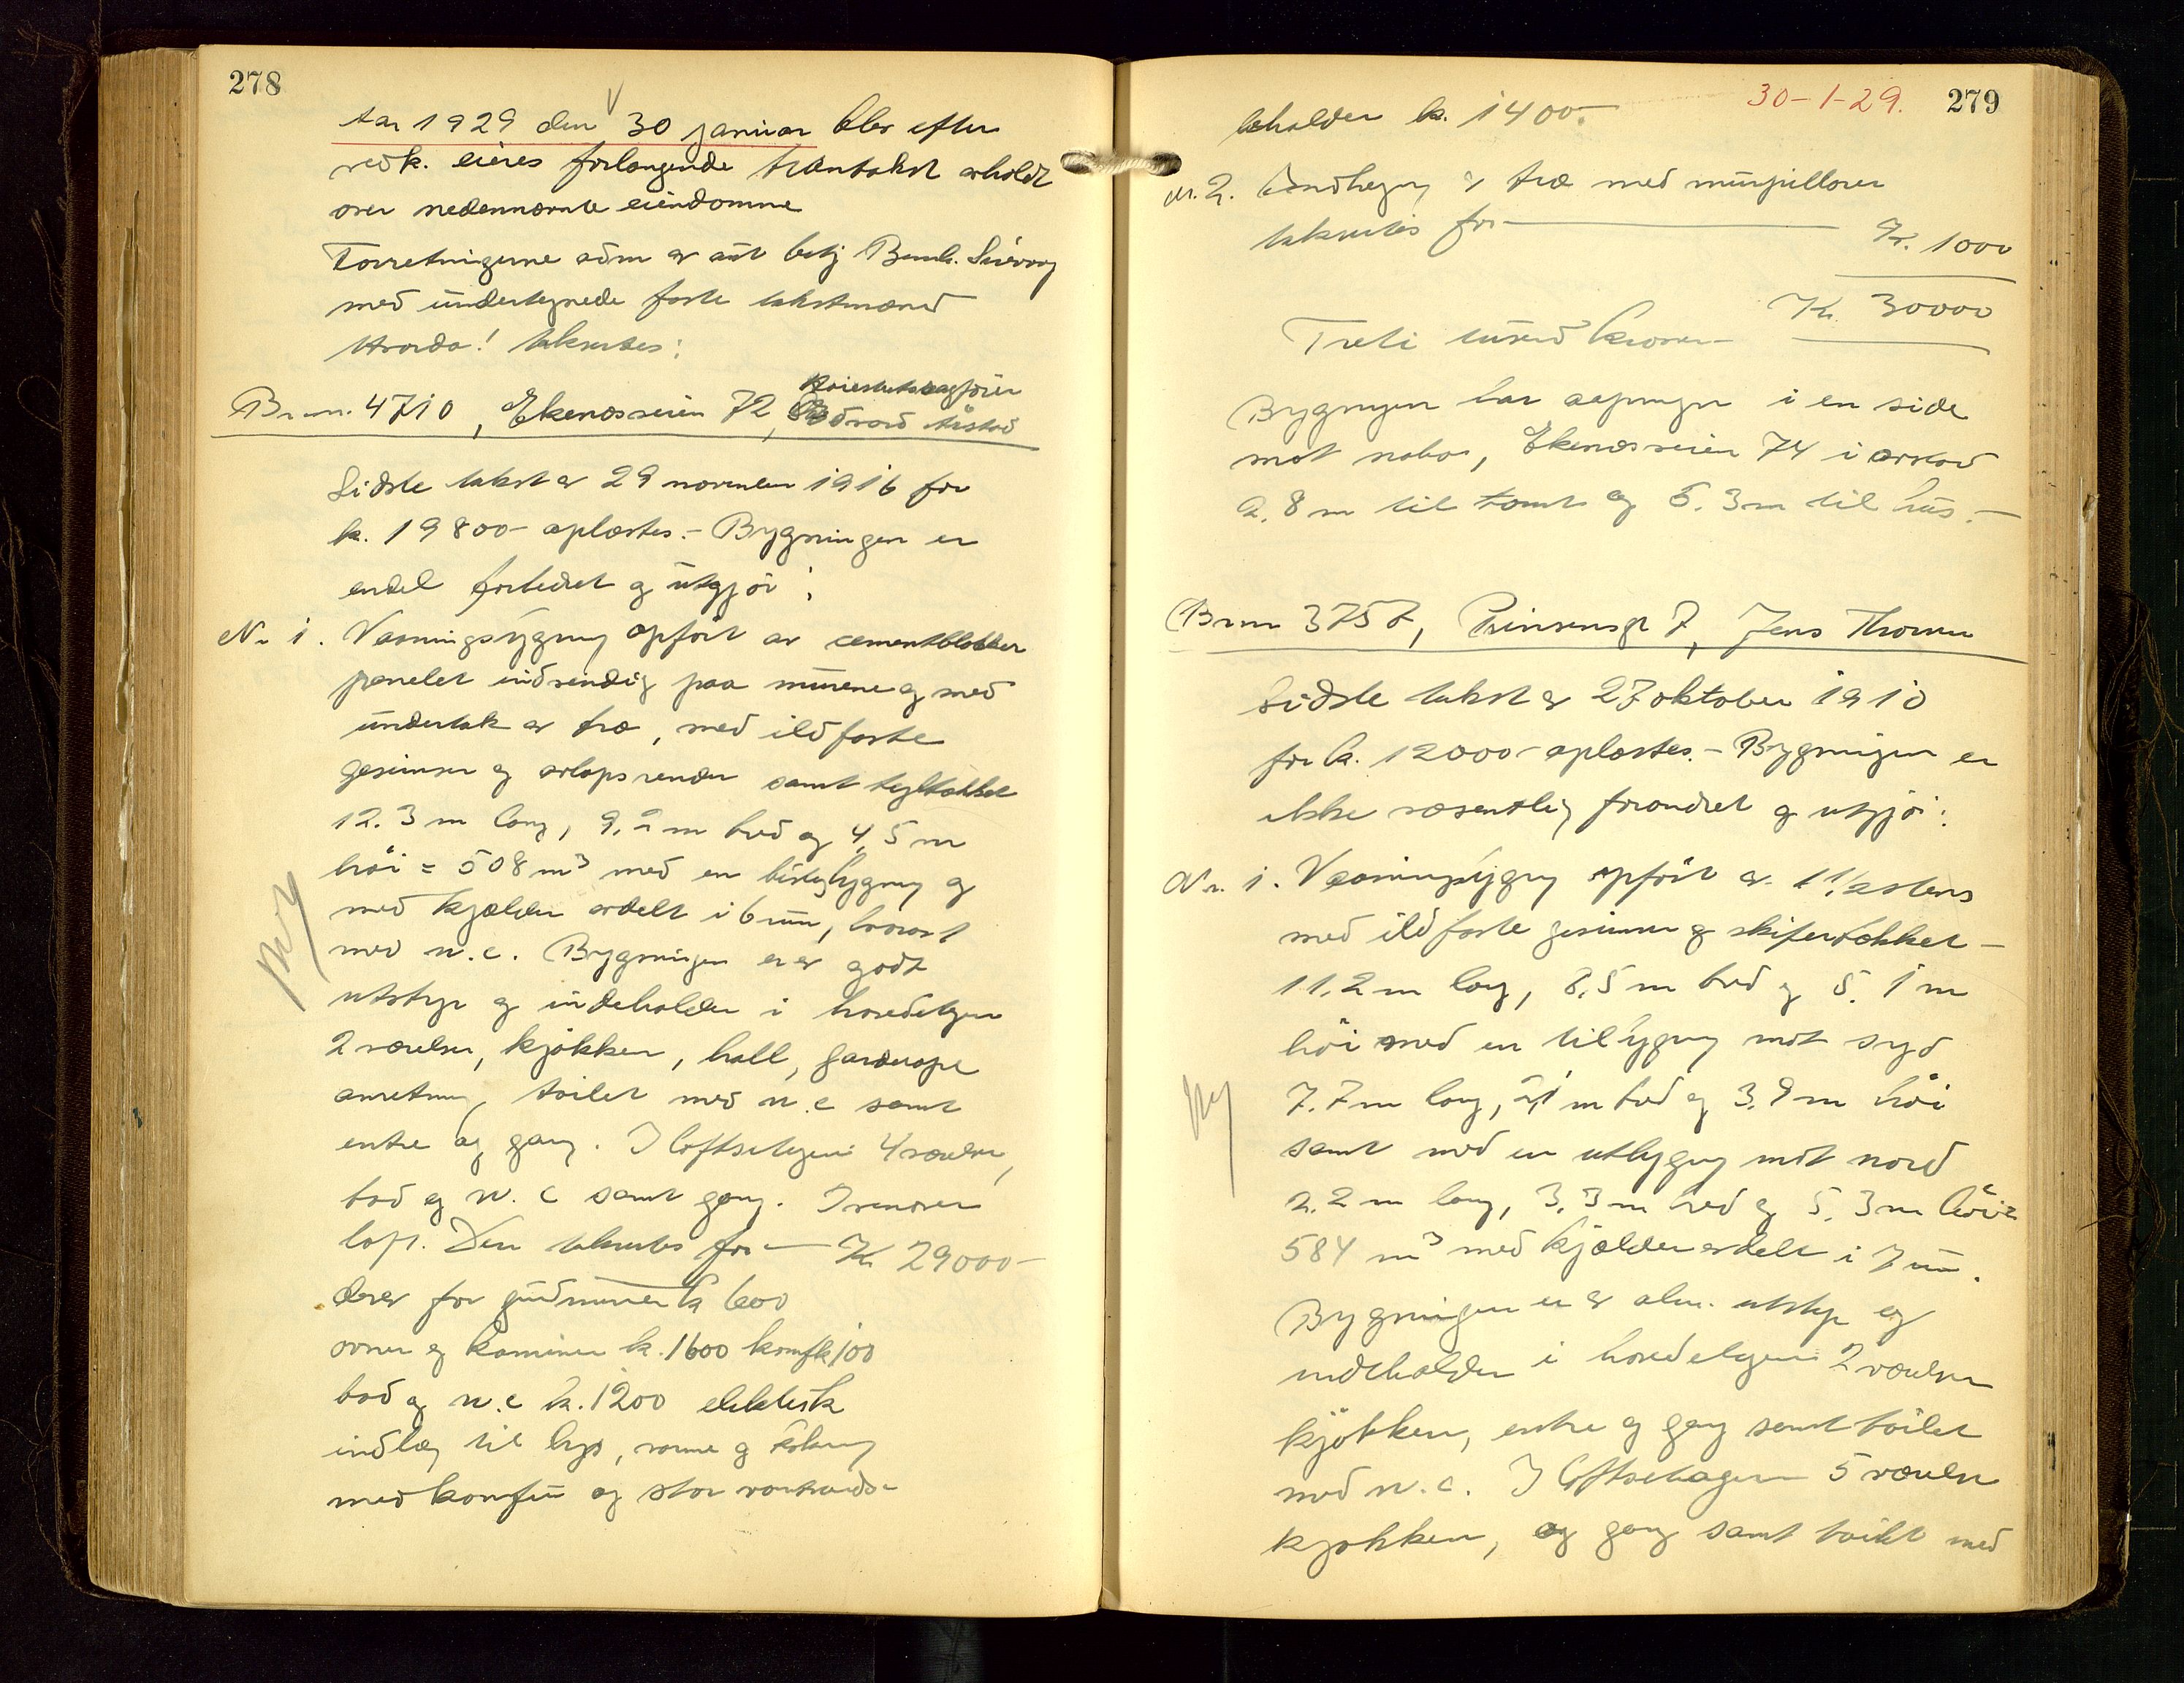 278
Aar 1929 den 30 januar blev efter
vedk. eieres forlangende branntakst avholdt
over nedennævnte eiendomme
Forretningerne adm av aut betj Bernh. Sivevag
med undertegnede faste takstmænd
Hvorda! taksertes:
Høiesteretssagfører
Br. nr. 4710, Ekenæsveien 72, Edvard Aastad
Sidste takst av 29 november 1916 for
kr. 19800- oplæstes.- Bygningen er
endel forbedret og utgjør:
Nr 1. Vaaningsbygning opført av cementblokker
panelet indvendig paa murene og med
undertak av træ, med ildfaste
gesimser og avløpsrender samt tegltækket
12.3 m lang, 9.2 m bred og 4,5 m
høi = 508 m³ med en bislagbygning og
med kjælder avdelt i 6 rum, hvorav 1
med w.c. Bygningen er av godt
utstyr og indeholder i hovedetagen
2 værelser, kjøkken, hall, garderope
anretning, toilet med w.c samt
entre og gang. I loftsetagen 4 værelser,
bad og w.c samt gang. Ovenover
loft. Den taksertes for — Kr 29000-
Derav for grundmuren kr 600
ovner og kaminer kr. 1600 komfkr 100
bad og w.c kr. 1200 elektrisk
indlæg til lys, varme og kokning
med komfur og stor varmtvands-
30-1-29. 279
beholder kr. 1400.-
Nr. 2. Indhegning av træ med murpillarer
taksertes for — Kr. 1000
Kr. 30000
Treti tusend kroner-
Bygningen har aapninger i en side
mot nabo, Ekenæsveien 74 i avstand
2.8 m til tomt og 5.3 m til hus.-
Br nr 3757, Prinsensgt 7, Jens Thorsen
Sidste takst av 27 oktober 1910
for kr. 12000- oplæstes.- Bygningen er
ikke væsentlig forandret og utgjør:
Nr. 1. Vaaningsbygning opført av 1 1/2 stens
med ildfaste gesimser og skifertækket -
11.2 m lang, 8,5 m bred og 5.1 m
høi med en tilbygning mot syd
7.7 m lang, 2,1 m bred og 3.9 m høi
samt med en utbygning mot nord
2.2 m lang, 3.3 m bred og 5.3 m høi =
584 m³ med kjælder avdelt i 7 rum.
Bygningen er av alm. utstyr og
indeholder i hovedetagen 2 værelser
kjøkken, entre og gang samt toilet
med w.c. I loftsetagen 5 værelser
kjøkken, og gang samt toilet med